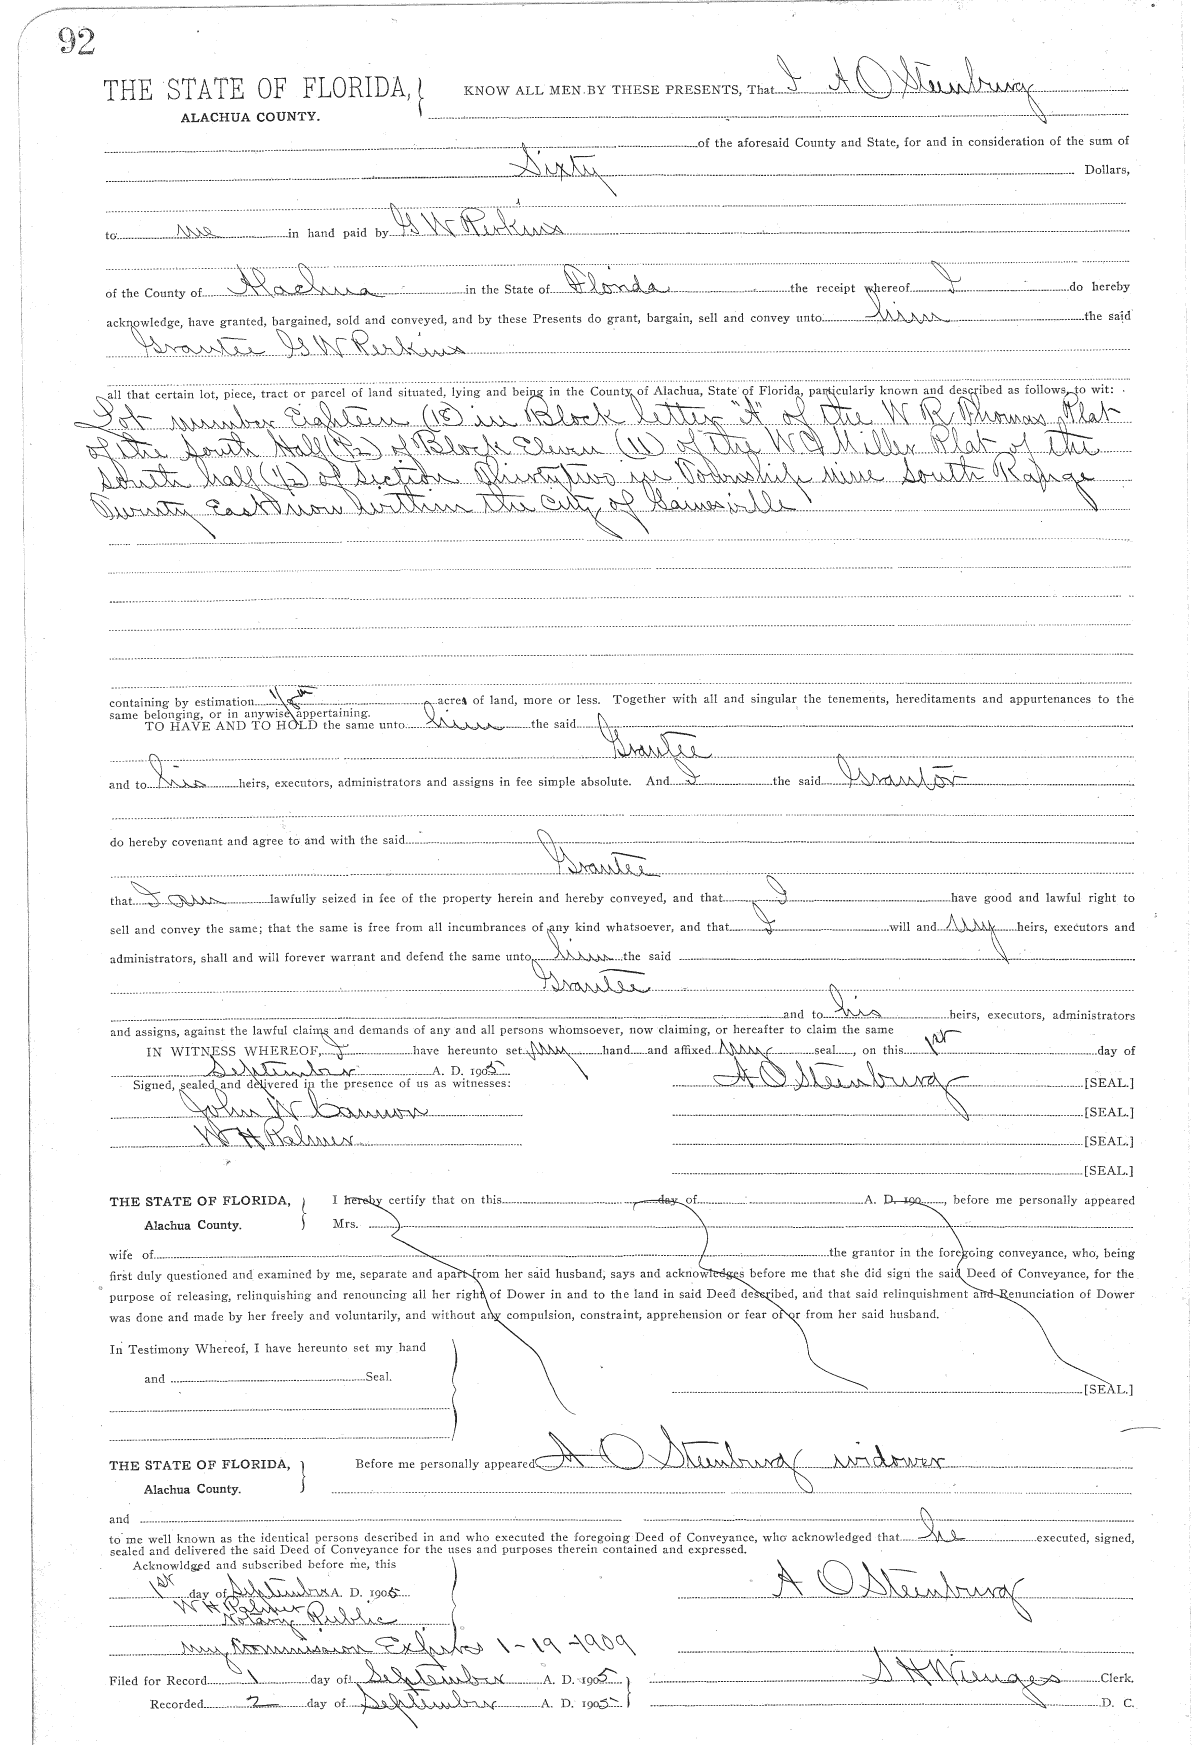 92
THE STATE OF FLORIDA, KNOW ALL MEN BY THESE PRESENTS, That I A O Steenburg
ALACHUA COUNTY.
of the aforesaid County and State, for and in consideration of the sum of
Sixty Dollars,
to me in hand paid by G W Perkins
of the County of Alachua in the State of Florida the receipt whereof I do hereby
acknowledge, have granted, bargained, sold and conveyed, and by these Presents do grant, bargain, sell and convey unto him the said
Grantee G W Perkins
all that certain lot, piece, tract or parcel of land situated, lying and being in the County of Alachua, State of Florida, particularly known and described as follows, to wit:
Lot number Eighteen (18) in Block letter "A" of the W R Thomas Plat
of the South Half (1/2) of Block Eleven (11) of the W J Miller Plat of the
South half (1/2) of section Thirty two in Township nine South Range
Twenty East now within the City of Gainesville
containing by estimation 1/8th acres of land, more or less. Together with all and singular the tenements, hereditaments and appurtenances to the
same belonging, or in anywise appertaining.
TO HAVE AND TO HOLD the same unto him the said
Grantee
and to his heirs, executors, administrators and assigns in fee simple absolute. And I the said Grantor
do hereby covenant and agree to and with the said
Grantee
that I am lawfully seized in fee of the property herein and hereby conveyed, and that I have good and lawful right to
sell and convey the same; that the same is free from all incumbrances of any kind whatsoever, and that I will and my heirs, executors and
administrators, shall and will forever warrant and defend the same unto him the said
Grantee
and to his heirs, executors, administrators
and assigns, against the lawful claims and demands of any and all persons whomsoever, now claiming, or hereafter to claim the same
IN WITNESS WHEREOF, I have hereunto set my hand and affixed my seal, on this 1st day of
September A. D. 1905
Signed, sealed and delivered in the presence of us as witnesses: A O Steenburg [SEAL.]
John W Cannon [SEAL.]
W H Palmer [SEAL.]
[SEAL.]
THE STATE OF FLORIDA, I hereby certify that on this day of A. D. 190 , before me personally appeared
Alachua County. Mrs.
wife of the grantor in the foregoing conveyance, who, being
first duly questioned and examined by me, separate and apart from her said husband, says and acknowledges before me that she did sign the said Deed of Conveyance, for the
purpose of releasing, relinquishing and renouncing all her right of Dower in and to the land in said Deed described, and that said relinquishment and Renunciation of Dower
was done and made by her freely and voluntarily, and without any compulsion, constraint, apprehension or fear of or from her said husband.
In Testimony Whereof, I have hereunto set my hand
and Seal.
[SEAL.]
THE STATE OF FLORIDA, Before me personally appeared A O Steenburg widower
Alachua County.
and
to me well known as the identical persons described in and who executed the foregoing Deed of Conveyance, who acknowledged that he executed, signed,
sealed and delivered the said Deed of Conveyance for the uses and purposes therein contained and expressed.
Acknowldged and subscribed before me, this
1st day of September A. D. 1905 A O Steenburg
W H Palmer
Notary Public
My Commission Expires 1-19-1909
Filed for Record 1 day of September A. D. 1905 S H Wienges Clerk.
Recorded 2 day of September A. D. 1905 D. C.